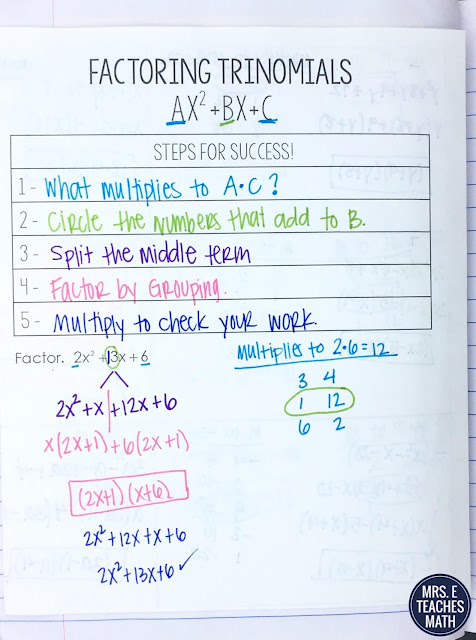 FACTORING TRINOMIALS
AX² + BX + C
STEPS FOR SUCCESS!
1 - What multiplies to A·C?
2 - Circle the numbers that add to B.
3 - Split the middle term
4 - Factor by Grouping.
5 - Multiply to check your work.
Factor. 2x² + 13x + 6
2x² + x + 12x + 6
x(2x+1) + 6(2x+1)
(2x+1)(x+6)
2x² + 12x + x + 6
2x² + 13x + 6 ✓
Multiplies to 2·6=12
3 4
1 12
6 2
MRS. E
TEACHES
MATH